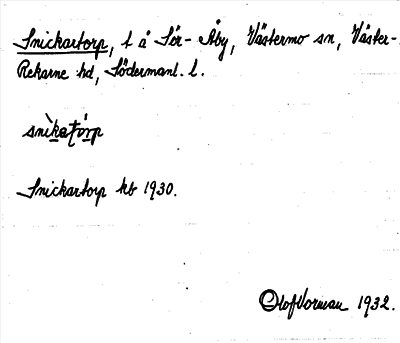 Snickartorp, t å Sör-Åby, Västermo sn, Väster-
Rekarne hd, Södermanl. l.
snìkatǫrp
Snickartorp kb 1930.
Olof Vorman 1932.